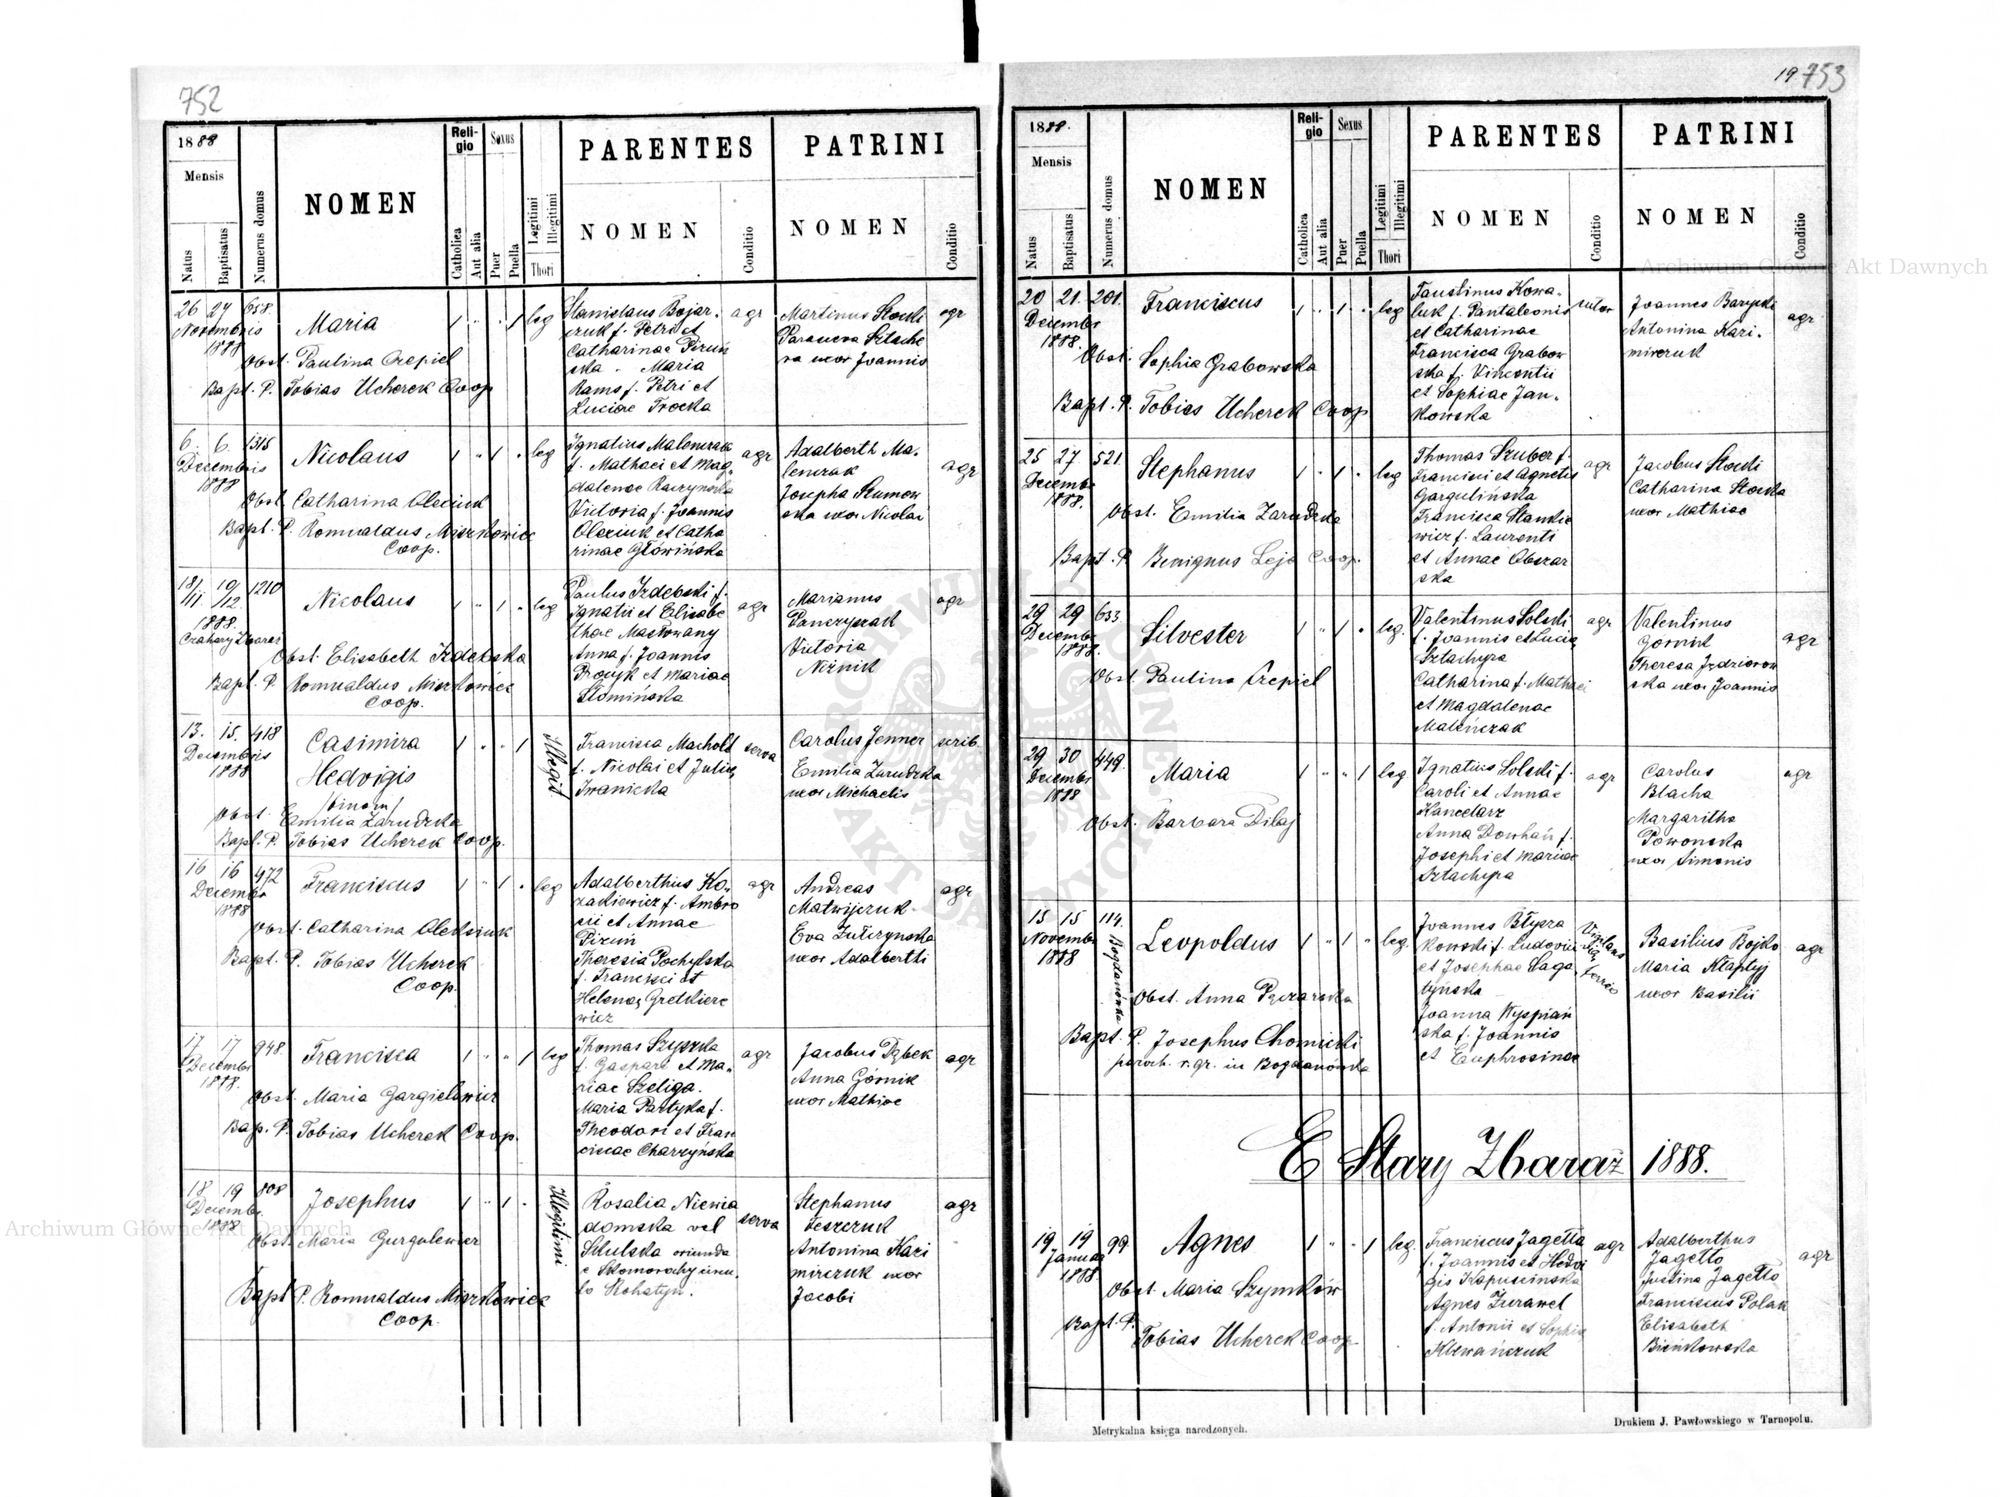 752
1888
Mensis
Natus
Baptisatus
Numerus domus
NOMEN
Religio
Catholica
Aut alia
Sexus
Puer
Puella
Legitimi
Illegitimi
Thori
PARENTES
NOMEN
Conditio
PATRINI
NOMEN
Conditio
26 27 658.
Novembris
1888
Maria
1 " " 1 leg
Obst. Paulina Crepiel
Bapt. P. Tobias Ucherek Coop
Stanislaus Bojar-
czuk f. Petri et
Catharinae Pizuń
ska . Maria
Rams f. Petri et
Luciae Trocka
agr
Martinus Stocki
Paraucva Sztache
ra uxor Joannis
agr
6. 6. 1315
Decembris
1888
Nicolaus
1 " 1 " leg
Obst. Catharina Oleciuk
Bapt. P. Romualdus Mirzkowicz
Coop.
Ignatius Malenczak
f. Mathaei et Mag-
dalenae Raczynska
Victoria f. Joannis
Oleciuk et Catha
rinae Główińska
agr
Adalberth Ma-
lenczak
Josepha Szumow
ska uxor Nicolai
agr
18/11. 10/12. 1210
1888.
Czahary Zbaraz
Nicolaus
1 " 1 " leg
Obst. Elisabeth Izdebska
Bapt. P. Romualdus Mirzkowicz
Coop.
Paulus Izdebski f.
Ignatii et Elisabe
thae Masłowany
Anna f. Joannis
Procyk et Mariae
Słomińska
agr
Marianus
Panczyszak
Victoria
Niżnik
agr
13. 15. 418
Decembris
1888
Casimira
Hedvigis
/binom/
1 " " 1 Illegit
Obst. Emilia Zarudzka
Bapt. P. Tobias Ucherek Coop.
Francisca Machold
f. Nicolai et Juliae
Iwanicka
serva
Carolus Jenner
Emilia Zarudzka
uxor Michaelis
scrib.
16 16 972
Decembr
1888
Franciscus
1 " 1 " leg
Obst. Catharina Oleksiuk
Bapt. P. Tobias Ucherek
Coop.
Adalberthus Ko-
zakiewicz f. Ambro
sii et Annae
Pizuń
Theresia Pochylska
f. Francisci et
Helenae Gretkiere
wicz
agr
Andreas
Matwijczuk.
Eva Zutczynska
uxor Adalberthi
agr
17 17 948.
Decembr
1888.
Francisca
1 " " 1 leg
Obst. Maria Gargielewicz
Bap. P. Tobias Ucherek Coop.
Thomas Szyszka
f. Gaspari et Ma-
riae Szeliga.
Maria Partyka f.
Theodori et Fran
ciscae Charzyńska
agr
Jacobus Dębek
Anna Górnik
uxor Mathiae
agr
18 19 808
Decemb.
1888
Josephus
1 " 1 " Illegitimi
Obst. Maria Gurgulewicz
Bapt P. Romualdus Mirzkowicz
Coop.
Rosalia Niewia
domska vel
Sikulska oriunda
e Skomorochy
Rohatyn.
serva
Stephanus
Teszczuk
Antonina Kazi
mirczuk uxor
Jacobi
agr
19 753
1888.
Mensis
Natus
Baptisatus
Numerus domus
NOMEN
Religio
Catholica
Aut alia
Sexus
Puer
Puella
Legitimi
Illegitimi
Thori
PARENTES
NOMEN
Conditio
PATRINI
NOMEN
Conditio
20 21. 201.
Decembr
1888.
Franciscus
1 " 1 " leg
Obst. Sophia Grabowska
Bapt. P. Tobias Ucherek Coop
Faustinus Kowa-
luk f. Pantaleonis
et Catharinae
Francisca Grabow
ska f. Vincentii
et Sophiae Jan-
kowska
sutor
Joannes Barycki
Antonina Kazi-
mirczuk
agr
25 27 521.
Decembr
1888.
Stephanus
1 " 1 " leg
Obst. Emilia Zarudzka
Bapt. P. Benignus Lejo Coop.
Thomas Szuber f.
Francisci et Agnetis
Gargulińska
Francisca Stankie
wicz f. Laurenti
et Annae Obszar
ska
agr
Jacobus Stocki
Catharina Stocka
uxor Mathiae
29 29 633
Decembr
1888.
Silvester
1 " 1 " leg.
Obst. Paulina Crepiel
Valentinus Solski
f. Joannis et Luciae
Sztachyra
Catharina f. Mathaei
et Magdalenae
Maleńczak
agr
Valentinus
Górnik
Theresa Jędziorow
ska uxor Joannis
agr
29 30 449.
Decembr
1888
Maria
1 " " 1 leg
Obst. Barbara Dilaj
Ignatius Solski f.
Caroli et Annae
Kancelarz
Anna Dowhań f.
Josephi et Mariae
Sztachyra
agr
Carolus
Blacha
Margaritha
Powonska
uxor Simonis
agr
15 15 114.
Novembr
1888
Bogdanówka
Leopoldus
1 " 1 " leg.
Obst. Anna Pęczarska
Bapt. P. Josephus Chomicki
paroch. r. gr. in Bogdanówka
Joannes Błysza
kowski f. Ludovici
et Josephae Saga
tyńska
Joanna Wyspiań
ska f. Joannis
et Euphrosinae
Basilius Bojko
Maria Kłaptyj
uxor Basilii
agr
E Stary Zbaraż 1888.
19 19 99.
Januar
1888.
Agnes
1 " " 1 leg.
Obst. Maria Szymków
Bapt. P.
Tobias Ucherek Coop.
Franciscus Jagełła
f. Joannis et Hedvi
gis Kapuscinska
Agnes Żurawel
f. Antonii et Sophiae
Klewańczuk
agr
Adalberthus
Jagełło
Justina Jagełło
Franciscus Polak
Elisabeth
Bieńkowska
agr
Metrykalna księga narodzonych.
Drukiem J. Pawłowskiego w Tarnopolu.
Archiwum Główne Akt Dawnych
Archiwum Główne Akt Dawnych
ARCHIWUM GŁÓWNE AKT DAWNYCH